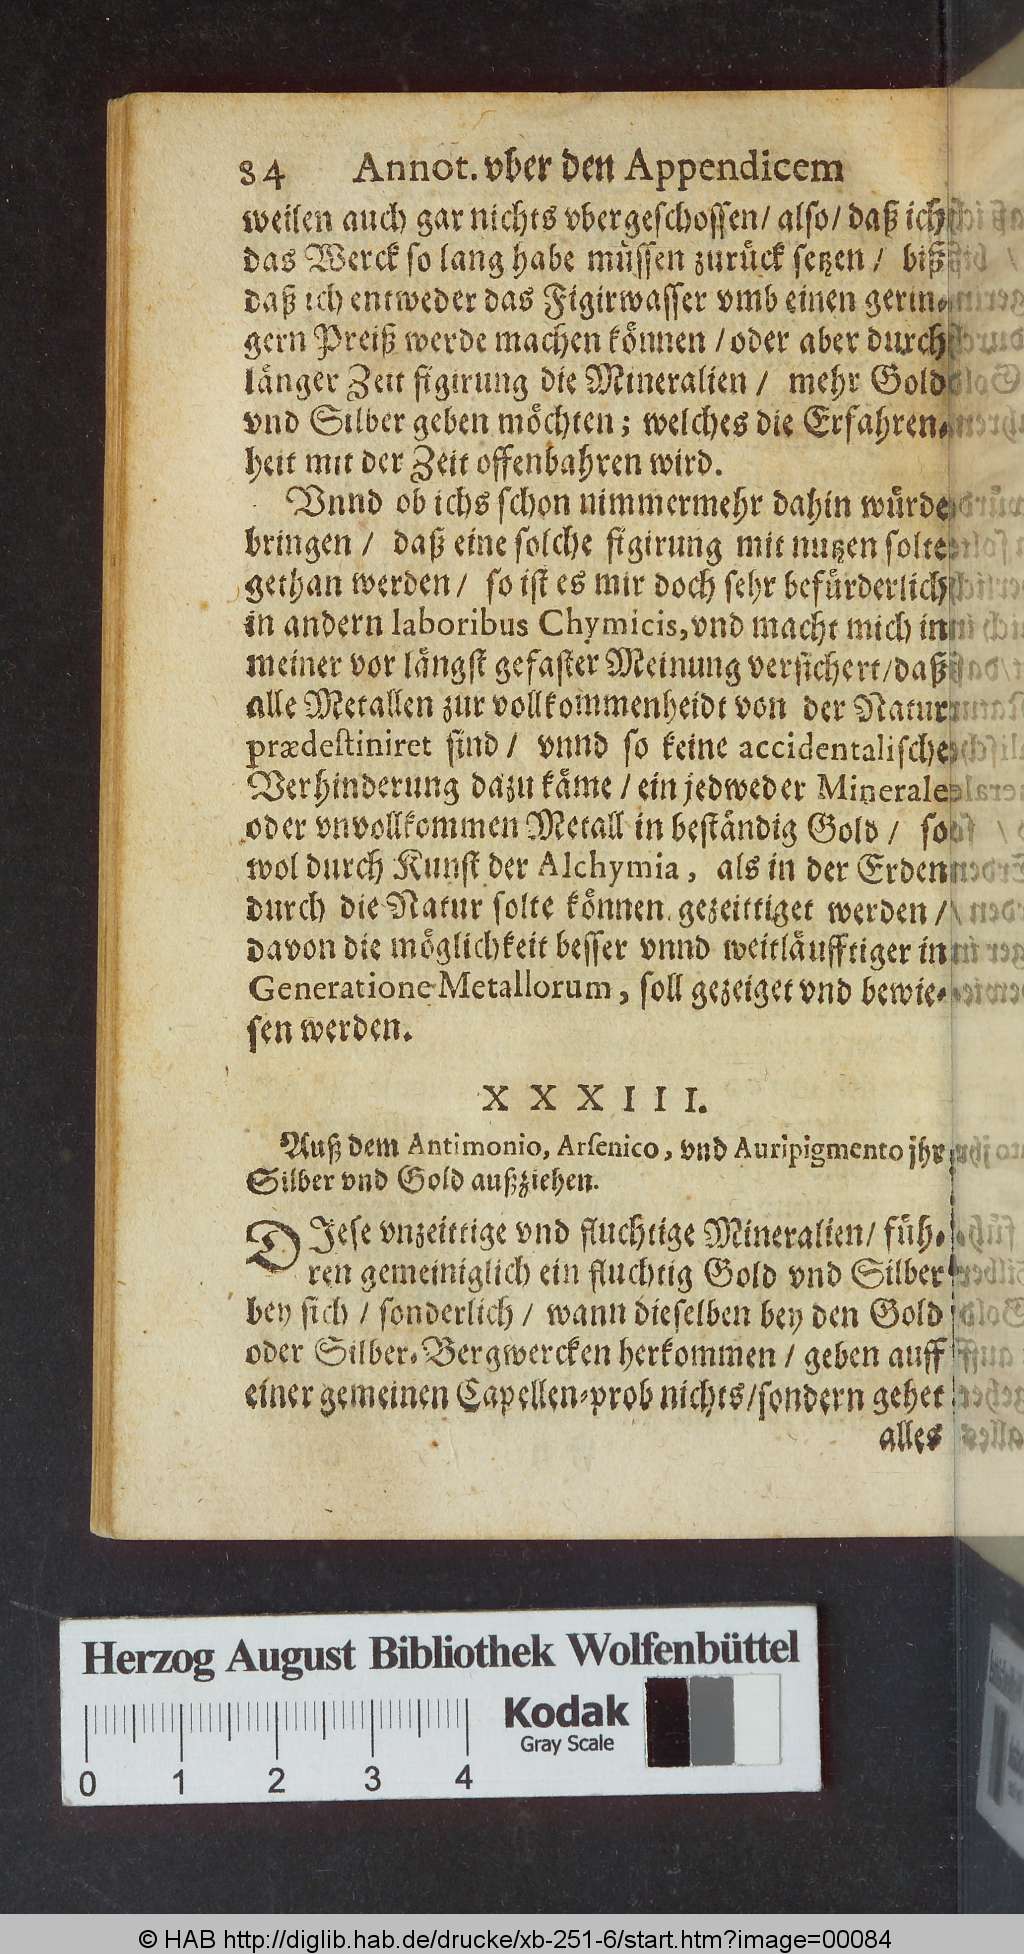 84 Annot. vber den Appendicem
weilen auch gar nichts vbergeschossen/ also/ daß ich
das Werck so lang habe müssen zurück setzen / biß
daß ich entweder das Figirwasser vmb einen gerin-
gern Preiß werde machen können / oder aber durch
länger Zeit figirung die Mineralien / mehr Gold
vnd Silber geben möchten; welches die Erfahren-
heit mit der Zeit offenbahren wird.
Vnnd ob ichs schon nimmermehr dahin würde
bringen / daß eine solche figirung mit nutzen solte
gethan werden / so ist es mir doch sehr befürderlich
in andern laboribus Chymicis, vnd macht mich in
meiner vor längst gefaster Meinung versichert / daß
alle Metallen zur vollkommenheidt von der Natur
prædestiniret sind / vnnd so keine accidentalische
Verhinderung dazu käme / ein jedweder Minerale
oder vnvollkommen Metall in beständig Gold / so
wol durch Kunst der Alchymia, als in der Erden
durch die Natur solte können gezeittiget werden /
davon die möglichkeit besser vnnd weitläufftiger in
Generatione Metallorum, soll gezeiget vnd bewie-
sen werden.
XXXIII.
Auß dem Antimonio, Arsenico, vnd Auripigmento jhr
Silber vnd Gold außziehen.
DJese vnzeittige vnd fluchtige Mineralien / füh-
ren gemeiniglich ein fluchtig Gold vnd Silber
bey sich / sonderlich / wann dieselben bey den Gold
oder Silber-Bergwercken herkommen / geben auff
einer gemeinen Capellen-prob nichts / sondern gehet
alles
Herzog August Bibliothek Wolfenbüttel
Kodak
Gray Scale
0 1 2 3 4
© HAB http://diglib.hab.de/drucke/xb-251-6/start.htm?image=00084